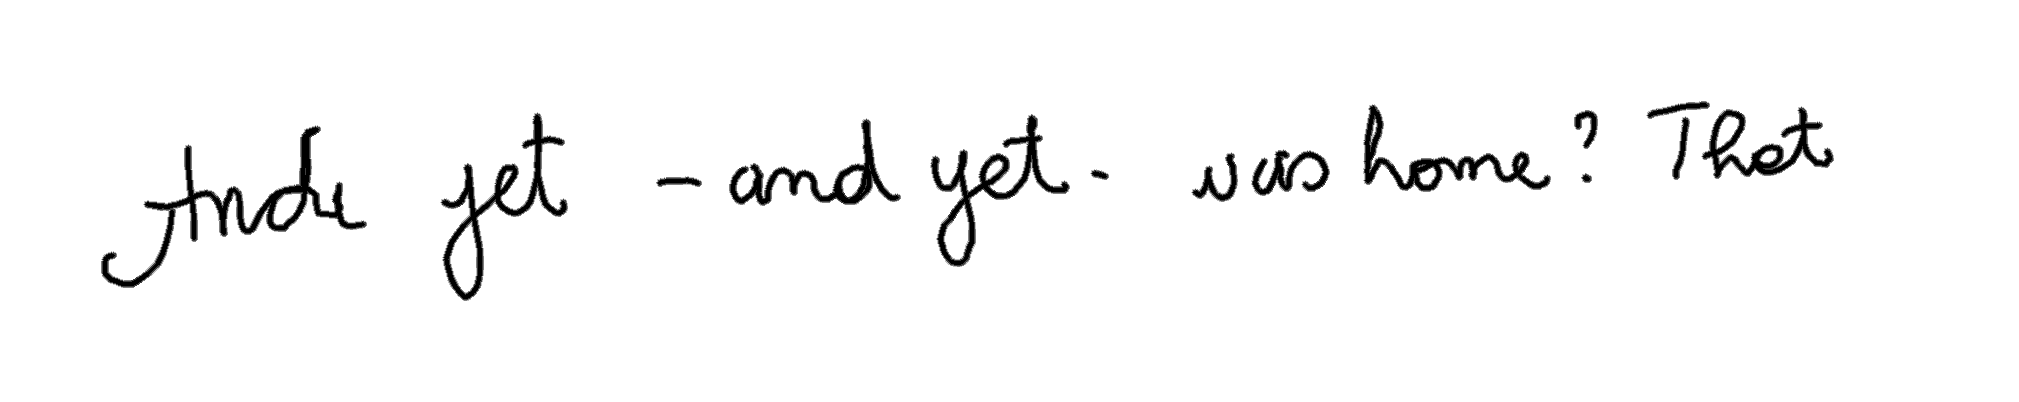 And yet - and yet - was home? That